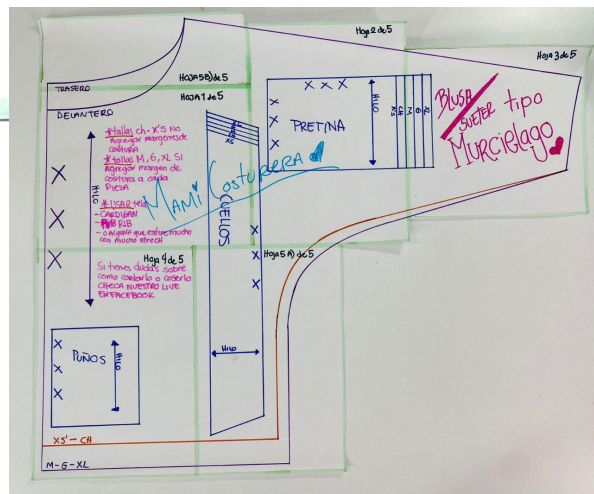 Hoja 2 de 5
Hoja 3 de 5
TRASERO
Hoja 5B) de 5
DELANTERO
Hoja 1 de 5
*tallas ch-x's No
Agregar margenes de
costura
*tallas M, G, XL SI
Agregar margen de
costura a cada
Pieza
*USAR tela
- CARDIGAN
- RIB
- o alguna que estire mucho
con mucho strech
HILO
Hoja 4 de 5
Si tienes dudas sobre
como cortarlo o coserlo
CHECA NUESTRO LIVE
EN FACEBOOK
MAMi COSTURERA
XS
CUELLOS
HILO
PRETINA
HILO
XS
CH
M
G
XL
BLUSA
SUETER tipo
MURCIELAGO
Hoja 5 A) de 5
PUÑOS
HILO
XS' - CH
M - G - XL